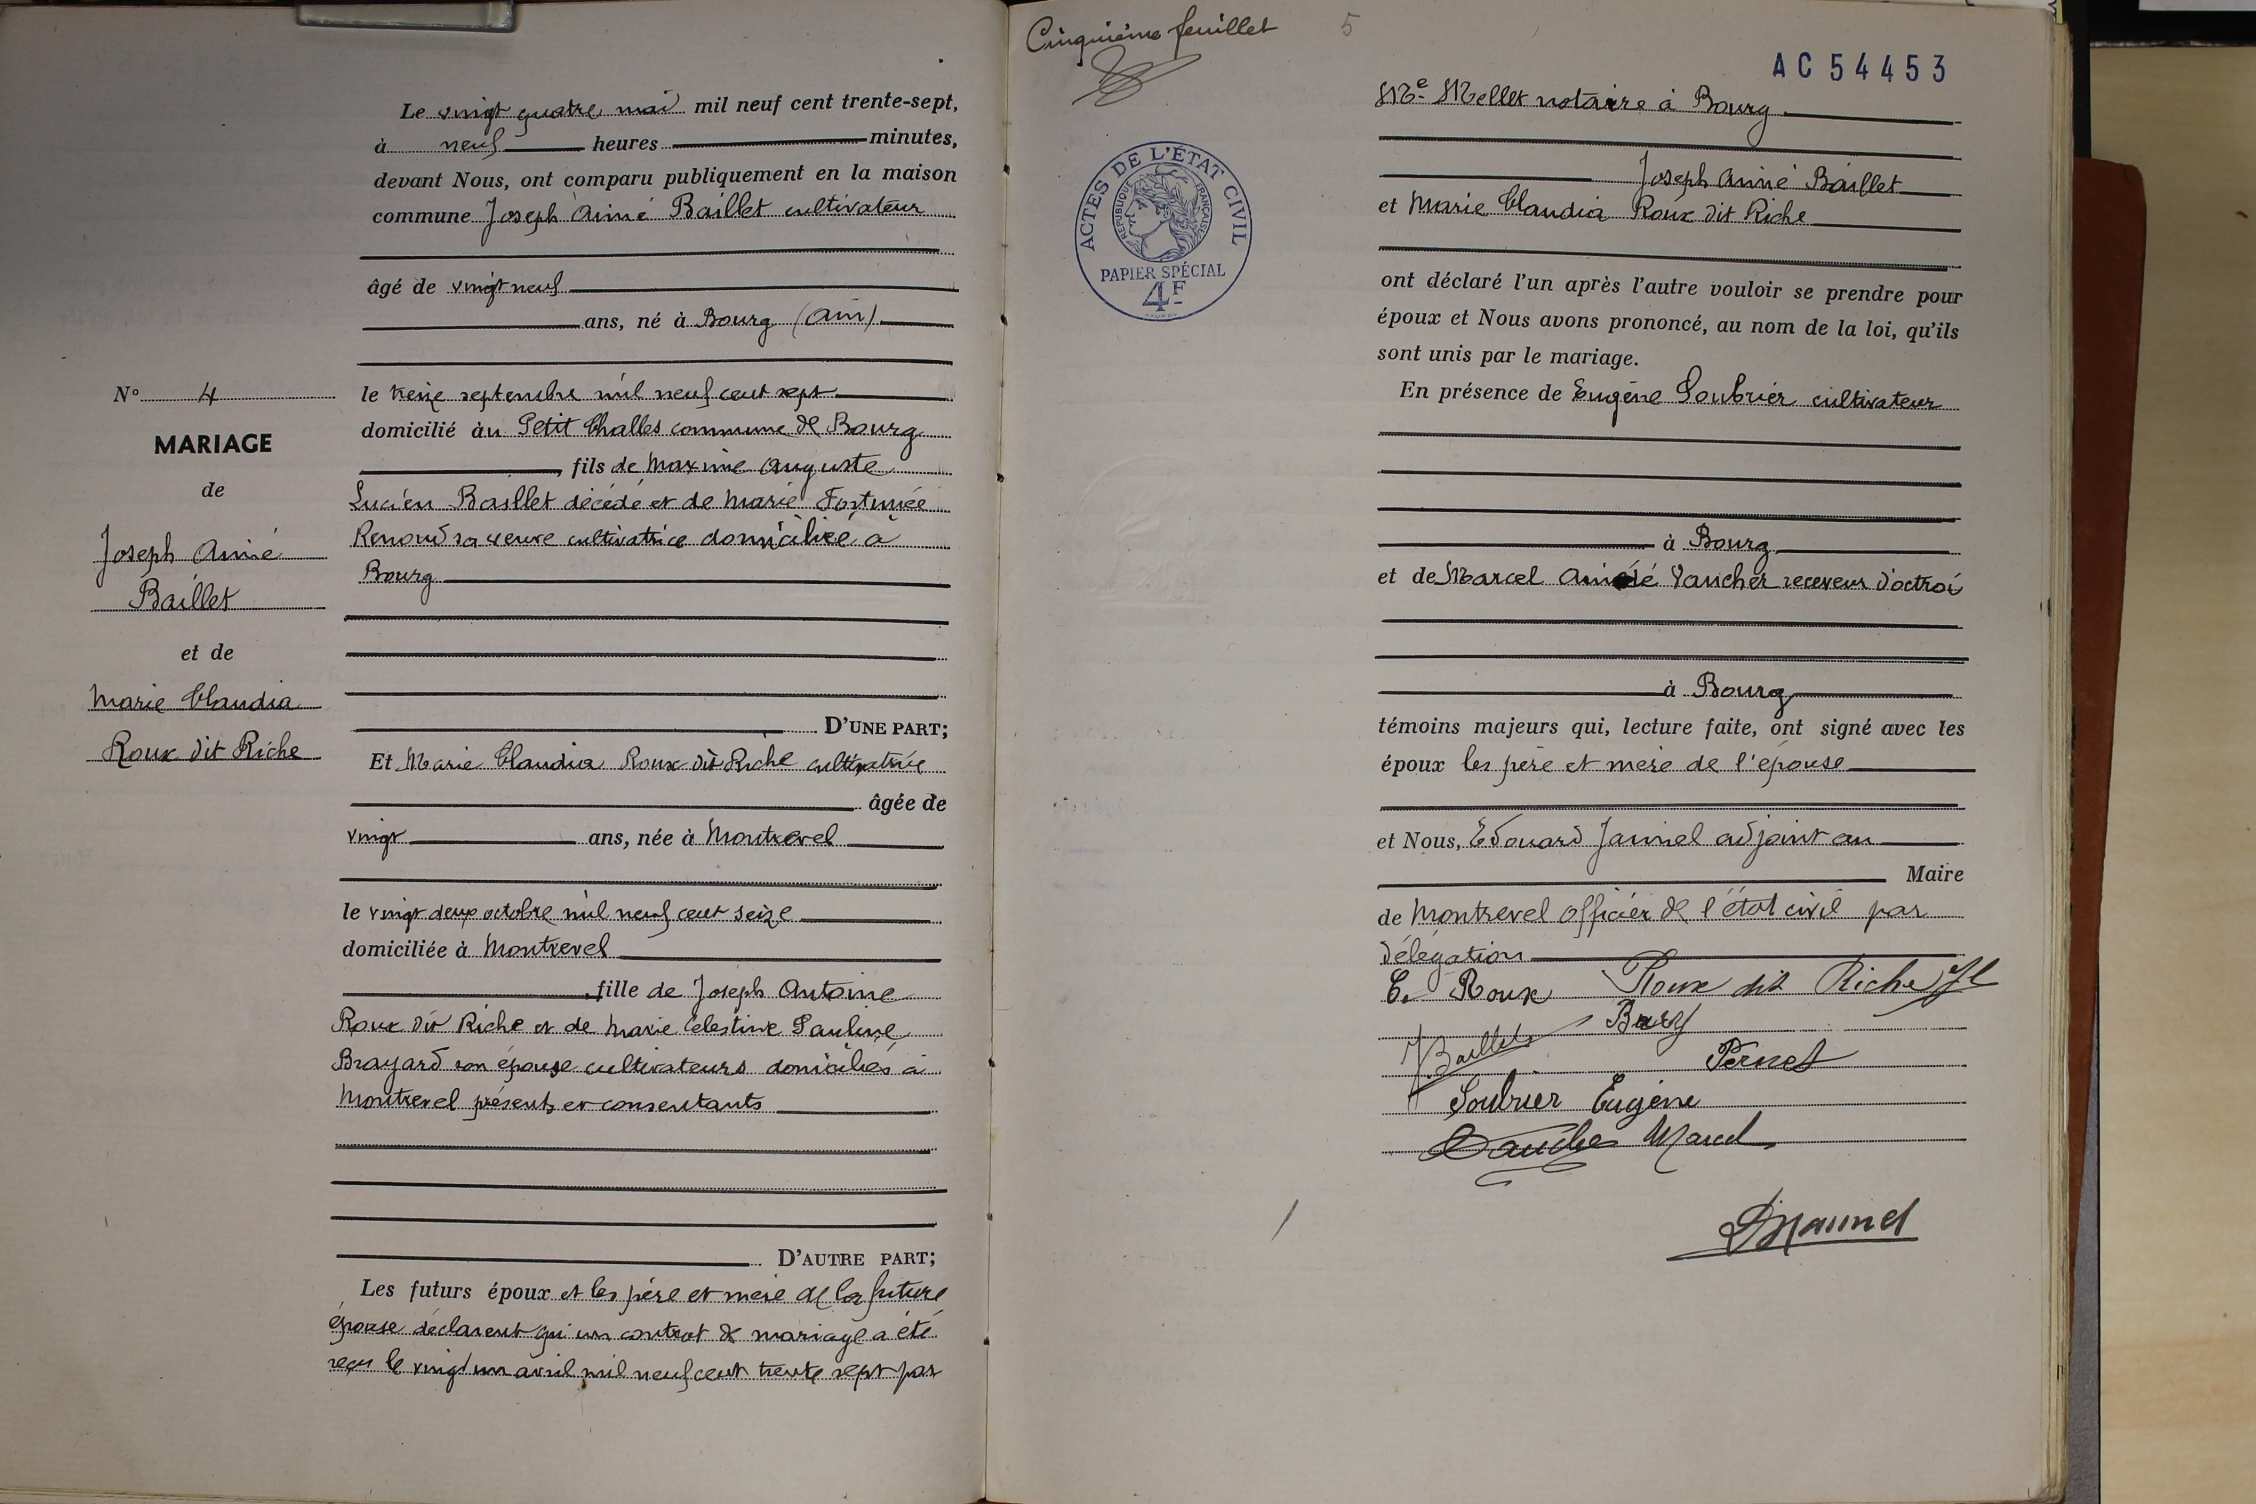 Le vingt quatre mai mil neuf cent trente-sept,
à neuf heures minutes,
devant Nous, ont comparu publiquement en la maison
commune Joseph Aimé Baillet cultivateur
âgé de vingt neuf
ans, né à Bourg (Ain)
le treize septembre mil neuf cent sept
domicilié au Petit Challes commune de Bourg
, fils de Maxime Auguste
Lucien Baillet décédé et de Marie Fortunée
Renoud sa veuve cultivatrice domiciliée à
Bourg
D'UNE PART;
Et Marie Claudia Roux dit Riche cultivatrice
âgée de
vingt ans, née à Montrevel
le vingt deux octobre mil neuf cent seize
domiciliée à Montrevel
, fille de Joseph Antoine
Roux dit Riche et de Marie Célestine Pauline
Brayard son épouse cultivateurs domiciliés à
Montrevel présents et consentants
D'AUTRE PART;
Les futurs époux et les père et mère de la future
épouse déclarent qu'un contrat de mariage a été
reçu le vingt un avril mil neuf cent trente sept par
N° 4
MARIAGE
de
Joseph Aimé
Baillet
et de
Marie Claudia
Roux dit Riche
Cinquième feuillet
5
AC 54453
ACTES DE L'ÉTAT CIVIL
RÉPUBLIQUE FRANÇAISE
PAPIER SPÉCIAL
4F
Me Mellet notaire à Bourg
Joseph Aimé Baillet
et Marie Claudia Roux dit Riche
ont déclaré l'un après l'autre vouloir se prendre pour
époux et Nous avons prononcé, au nom de la loi, qu'ils
sont unis par le mariage.
En présence de Eugène Soubrier cultivateur
à Bourg
et de Marcel Vaucher receveur d'octroi
à Bourg
témoins majeurs qui, lecture faite, ont signé avec les
époux les père et mère de l'épouse
et Nous, Edouard Janinel adjoint au
Maire
de Montrevel officier de l'état civil par
délégation
C. Roux Roux dit Riche
J Baillet
Pernet
Soubrier Eugène
Vaucher Marcel